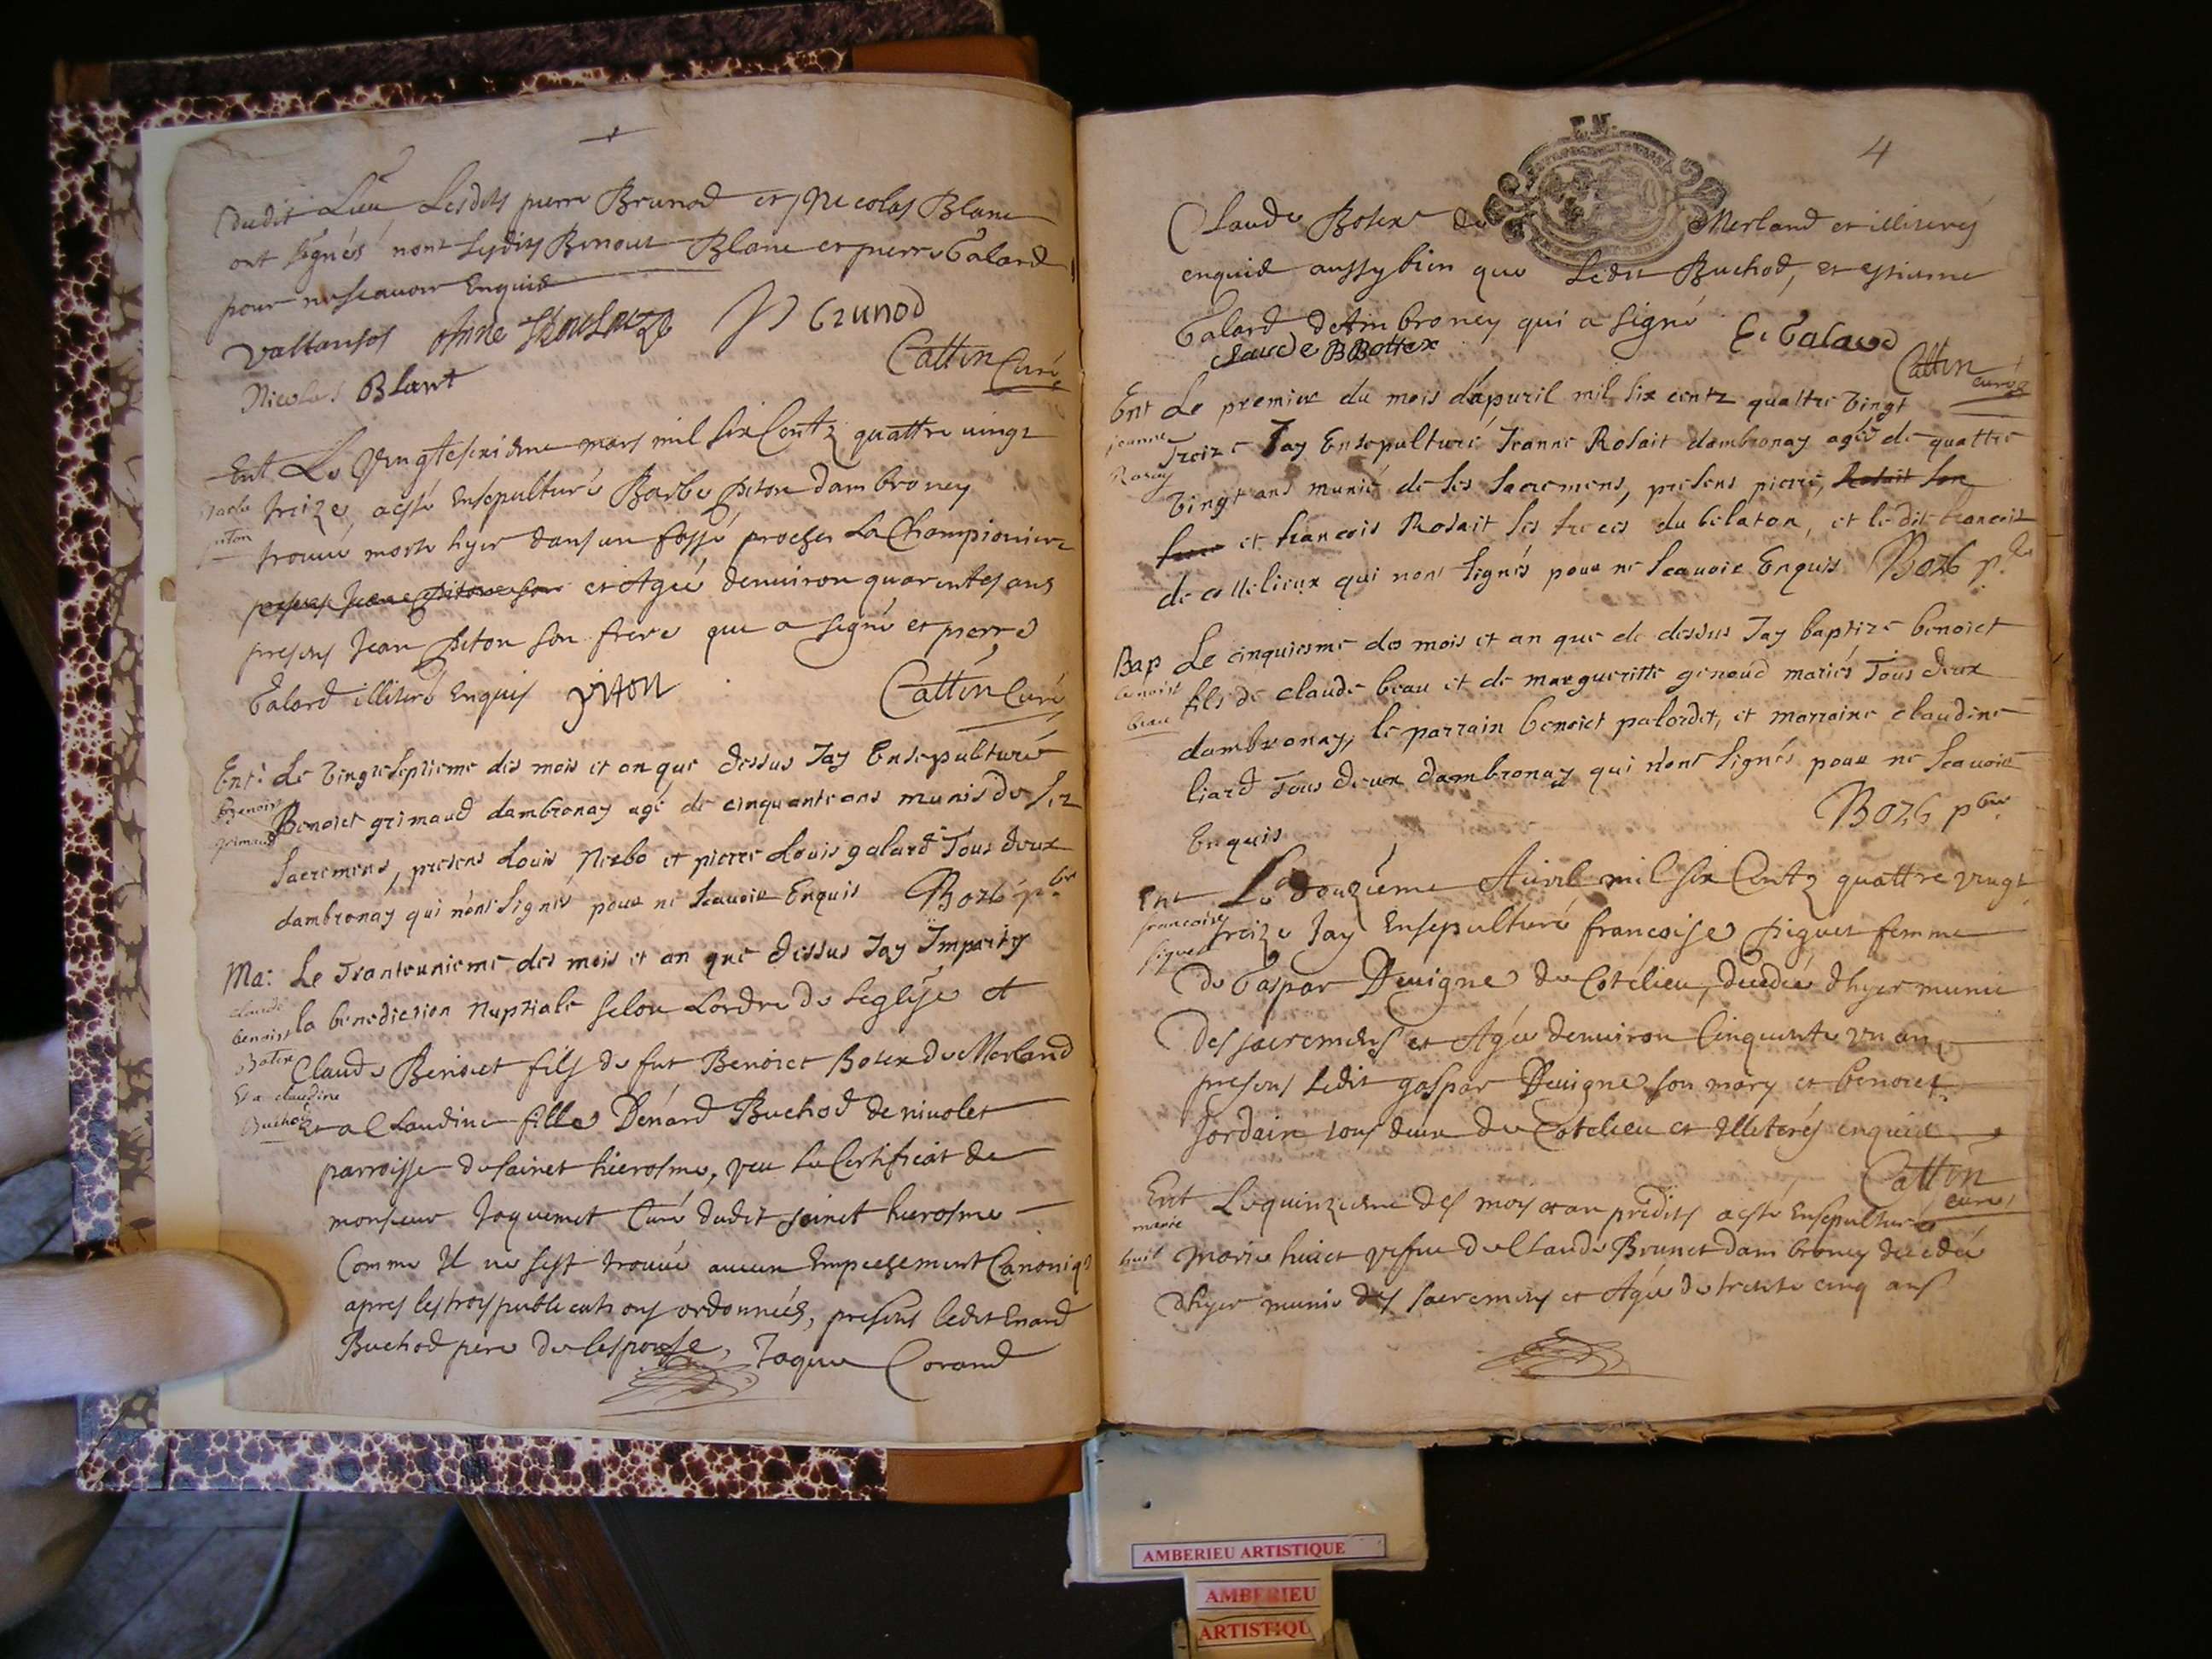 dudit Lieu Lesdits pierre Brunod et Nicolas Blanc
ont signés nont lesdits Benoict Blanc et pierre Galard
pour ne scavoir Enquid
vallansos Anne P Brunod
Nicolas Blant Cattin Curé
Ent Le Vingteseixiéme mars mil six Centz quattre vingt
Barbe piton
treize, a esté Ensepulturé Barbe piton dambroney
trouvé morte hyer dans un fossé proches La Championiere
et Agée denuiron quarentes ans
presens Jean piton son frere que a signé et pierre
Galard illiteré Enquis piton Cattin Curé
Ent: Le Vingtseptieme des mois et an que dessus Jay Ensepulturé
Benoist grimaud
Benoict grimaud dambronay agé de cinquante ans munis de sez
sacremens, presens Louis Nerbo et pierre Louis galard Tous deux
dambronay qui nont signés pour ne scauoir Enquis Bozb pbre
Ma: Le Tranteunieme des mois et an que dessus Jay Imparty
claude benoist Botex Et a claudine Buchod
la benediction Nuptiale selon Lordre de leglise et
Claude Benoict fils de fut Benoict Botex du Merland
et a Claudine fille Denard Buchod de niuolet
parroisse de sainct hierosme, veu le Certificat de
monsieur Jaquemet Curé dudit sainct hierosme
Comme Il ne sest trouué aucun Empeschement Canoniq
apres les trois publications ordonnées, presens ledit Enard
Buchod pere de lespouse, Jaque Corand
4
Claude Botex du Merland et illiterés
enquid aussy bien que Ledit Buchod, et estienne
Galard dAmbroney qui a signé E. Galard
claude B Bottex Cattin curé
Ent Le premier du mois dapuril mil six centz quattre vingt
jeanne Rosay
Treize Jay Ensepulturé Jeanne Rosait dambronay agée de quattre
vingt ans munie de ses sacremens, presens pierre, Rosait son
frere et francois Rosait ses freres du belaton, et le dit francois
de collelieux qui nont signés pour ne scauoir Enquis Bozb pbre
Bap Le cinquiesme des mois et an que de dessus Jay baptize benoict
benoist beau
fils de claude beau et de margueritte genoud mariés Tous deux
dambronay, le parrain benoict palordet, et marraine claudine
liard Tous deux dambronay qui nont signés pour ne scauoir
Enquis Bozb pbre
Ent Le douziéme Auril mil six Centz quattre vingt
francoise piquet
treize Jay Ensepulturé francoise piquet femme
de Gaspar Deuigne du Cotélieu, decedée dhyer munie
des sacremens et Agée denuiron Cinquante vn an
presens Ledit gaspar Deuigne son mary et benoict
Jordain tous deux du Cotelieu et Illeterés enquid
Cattin curé
Ent Le quinziéme des mois et an predits a esté Ensepulturé
marie huit
Marie huict vefue de Claude Brunet dambroney decedée
dhyer munie des sacremens et Agée de trente cinq ans
AMBERIEU ARTISTIQUE
AMBERIEU
ARTISTIQU